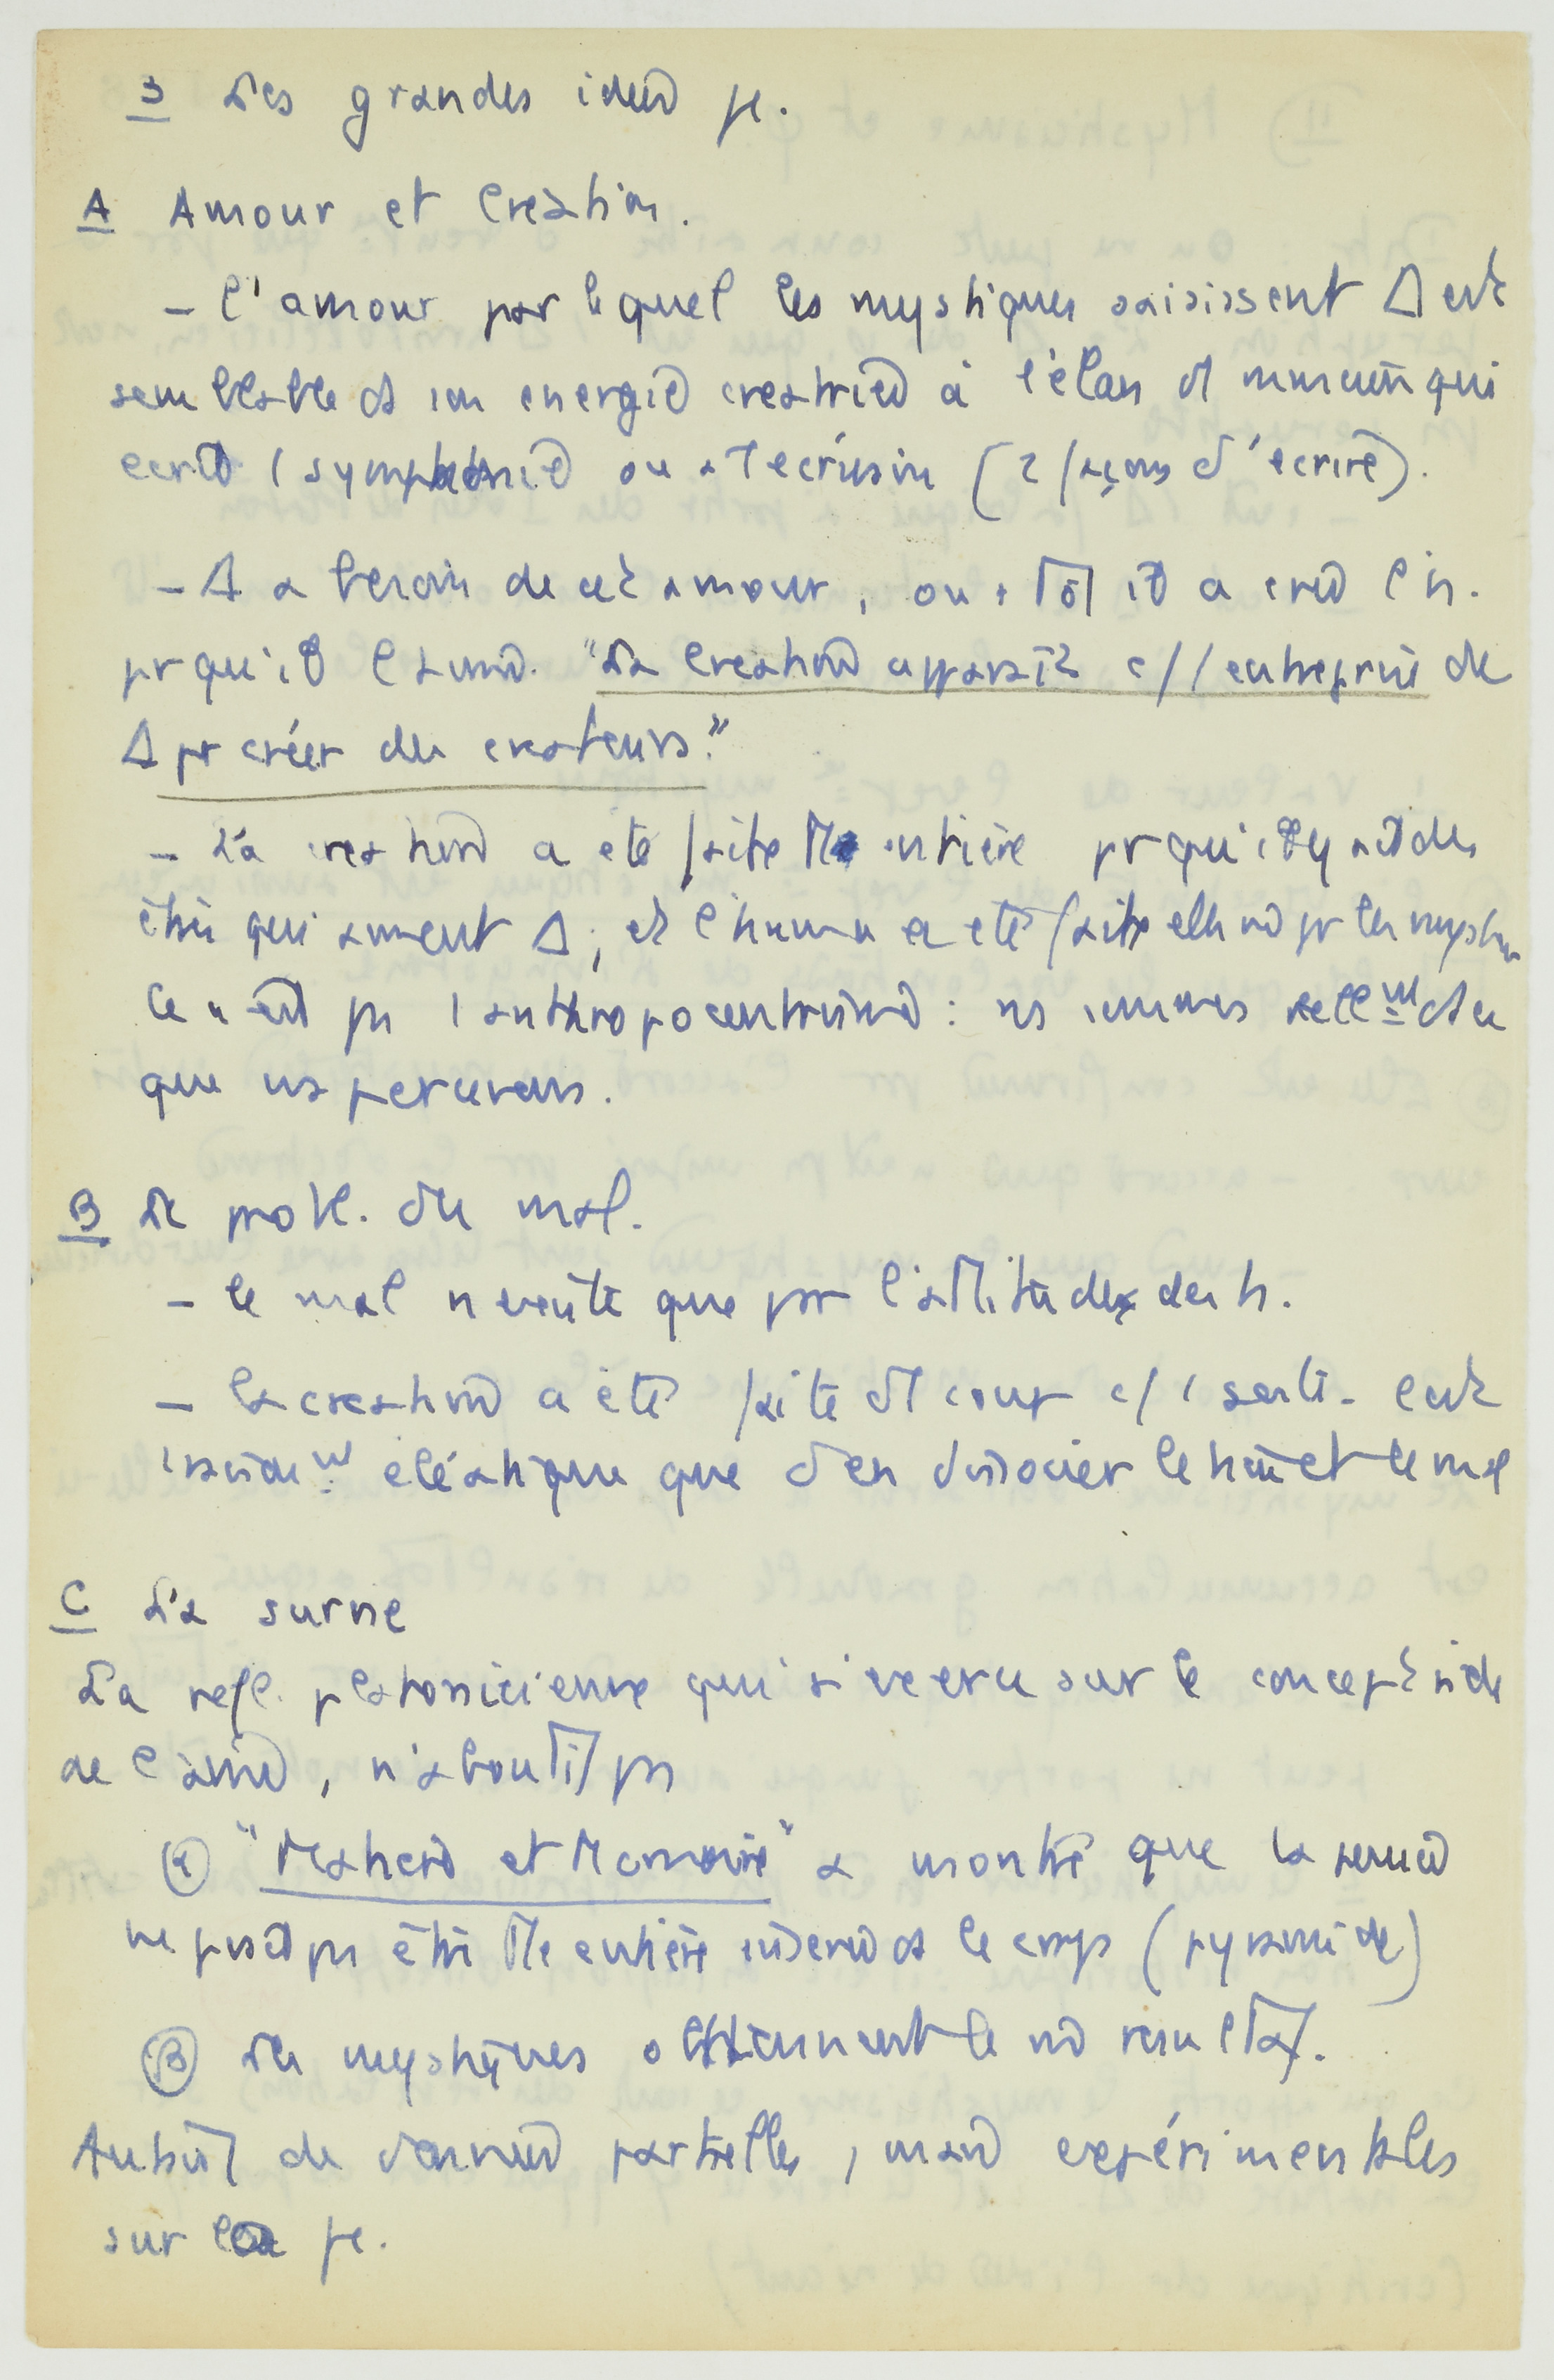 3 Les grandes idées φ.
A Amour et Création.
- l'amour par lequel les mystiques saisissent Δ est
semblable ds son énergie créatrice à l'élan d'1 musicien qui
écrit 1 symphonie ou à l'écrivain (2 façons d'écrire).
- Δ a besoin de cet amour, ou + tôt il a créé l'h.
pr qu'il l'aime. "La Création apparaît c/ 1 entreprise de
Δ pr créer des créateurs."
- La création a été faite tt entière pr qu'il y ait des
êtres qui aiment Δ; et l'huma a été faite elle mê pr les mystiques
Ce n'est pas 1 anthropocentrisme : ns sommes réellemt du
que ns percevons.
B Le probl. du mal.
- le mal n'existe que par l'attitude des h.
- la création a été faite d'1 coup c/ 1 saut. C'est
éléatique que d'en dissocier le bien et le mal
C La survie
La réfl. platonicienne qui s'exerce sur le concept
de l'âme, n'aboutit pas
α "Matière et Mémoire" a montré que la pensée
ne peut pas être tte entière insérée ds le corps (pyramide)
β Les mystiques obtiennent le mê résultat.
Autant de données partielles, mais expérimentales
sur la φ.